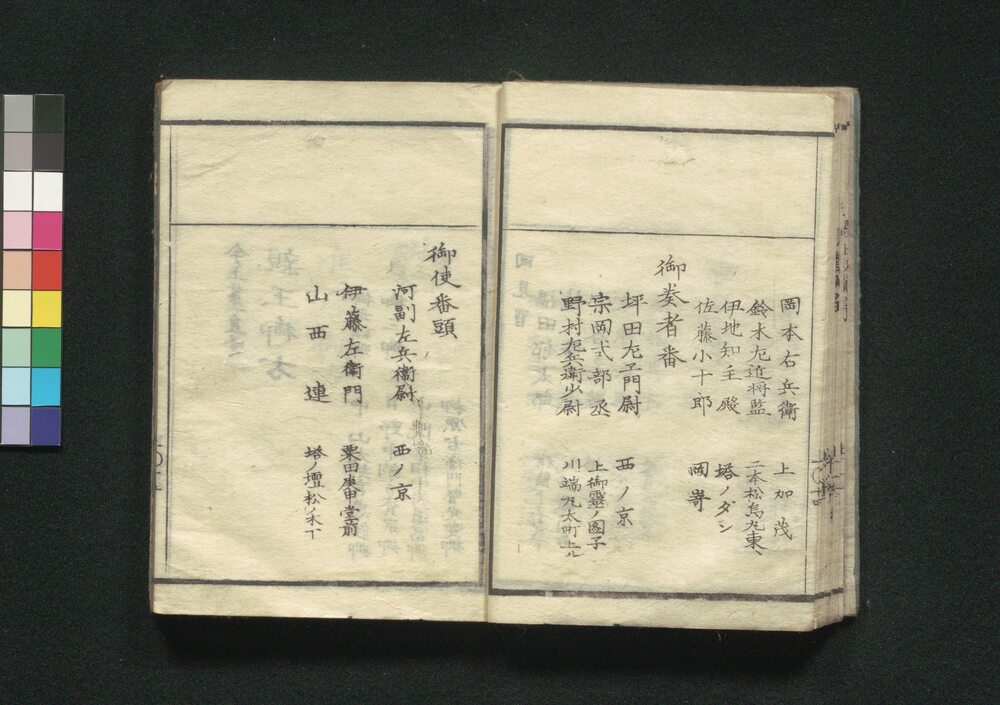 岡本右兵衛 上加茂
鈴木左近将監 二本松烏丸東へ
伊地知主殿 塔ノダン
佐藤小十郎 岡嵜
御奏者番
坪田左エ門尉 西ノ京
宗岡式部丞 上御霊ノ図子
野村左兵衛少尉 川端丸太町上ル
御使番頭
河副左兵衛尉 西ノ京
伊藤左衛門 粟田庚申堂前
山西連 塔ノ壇松ノ木下